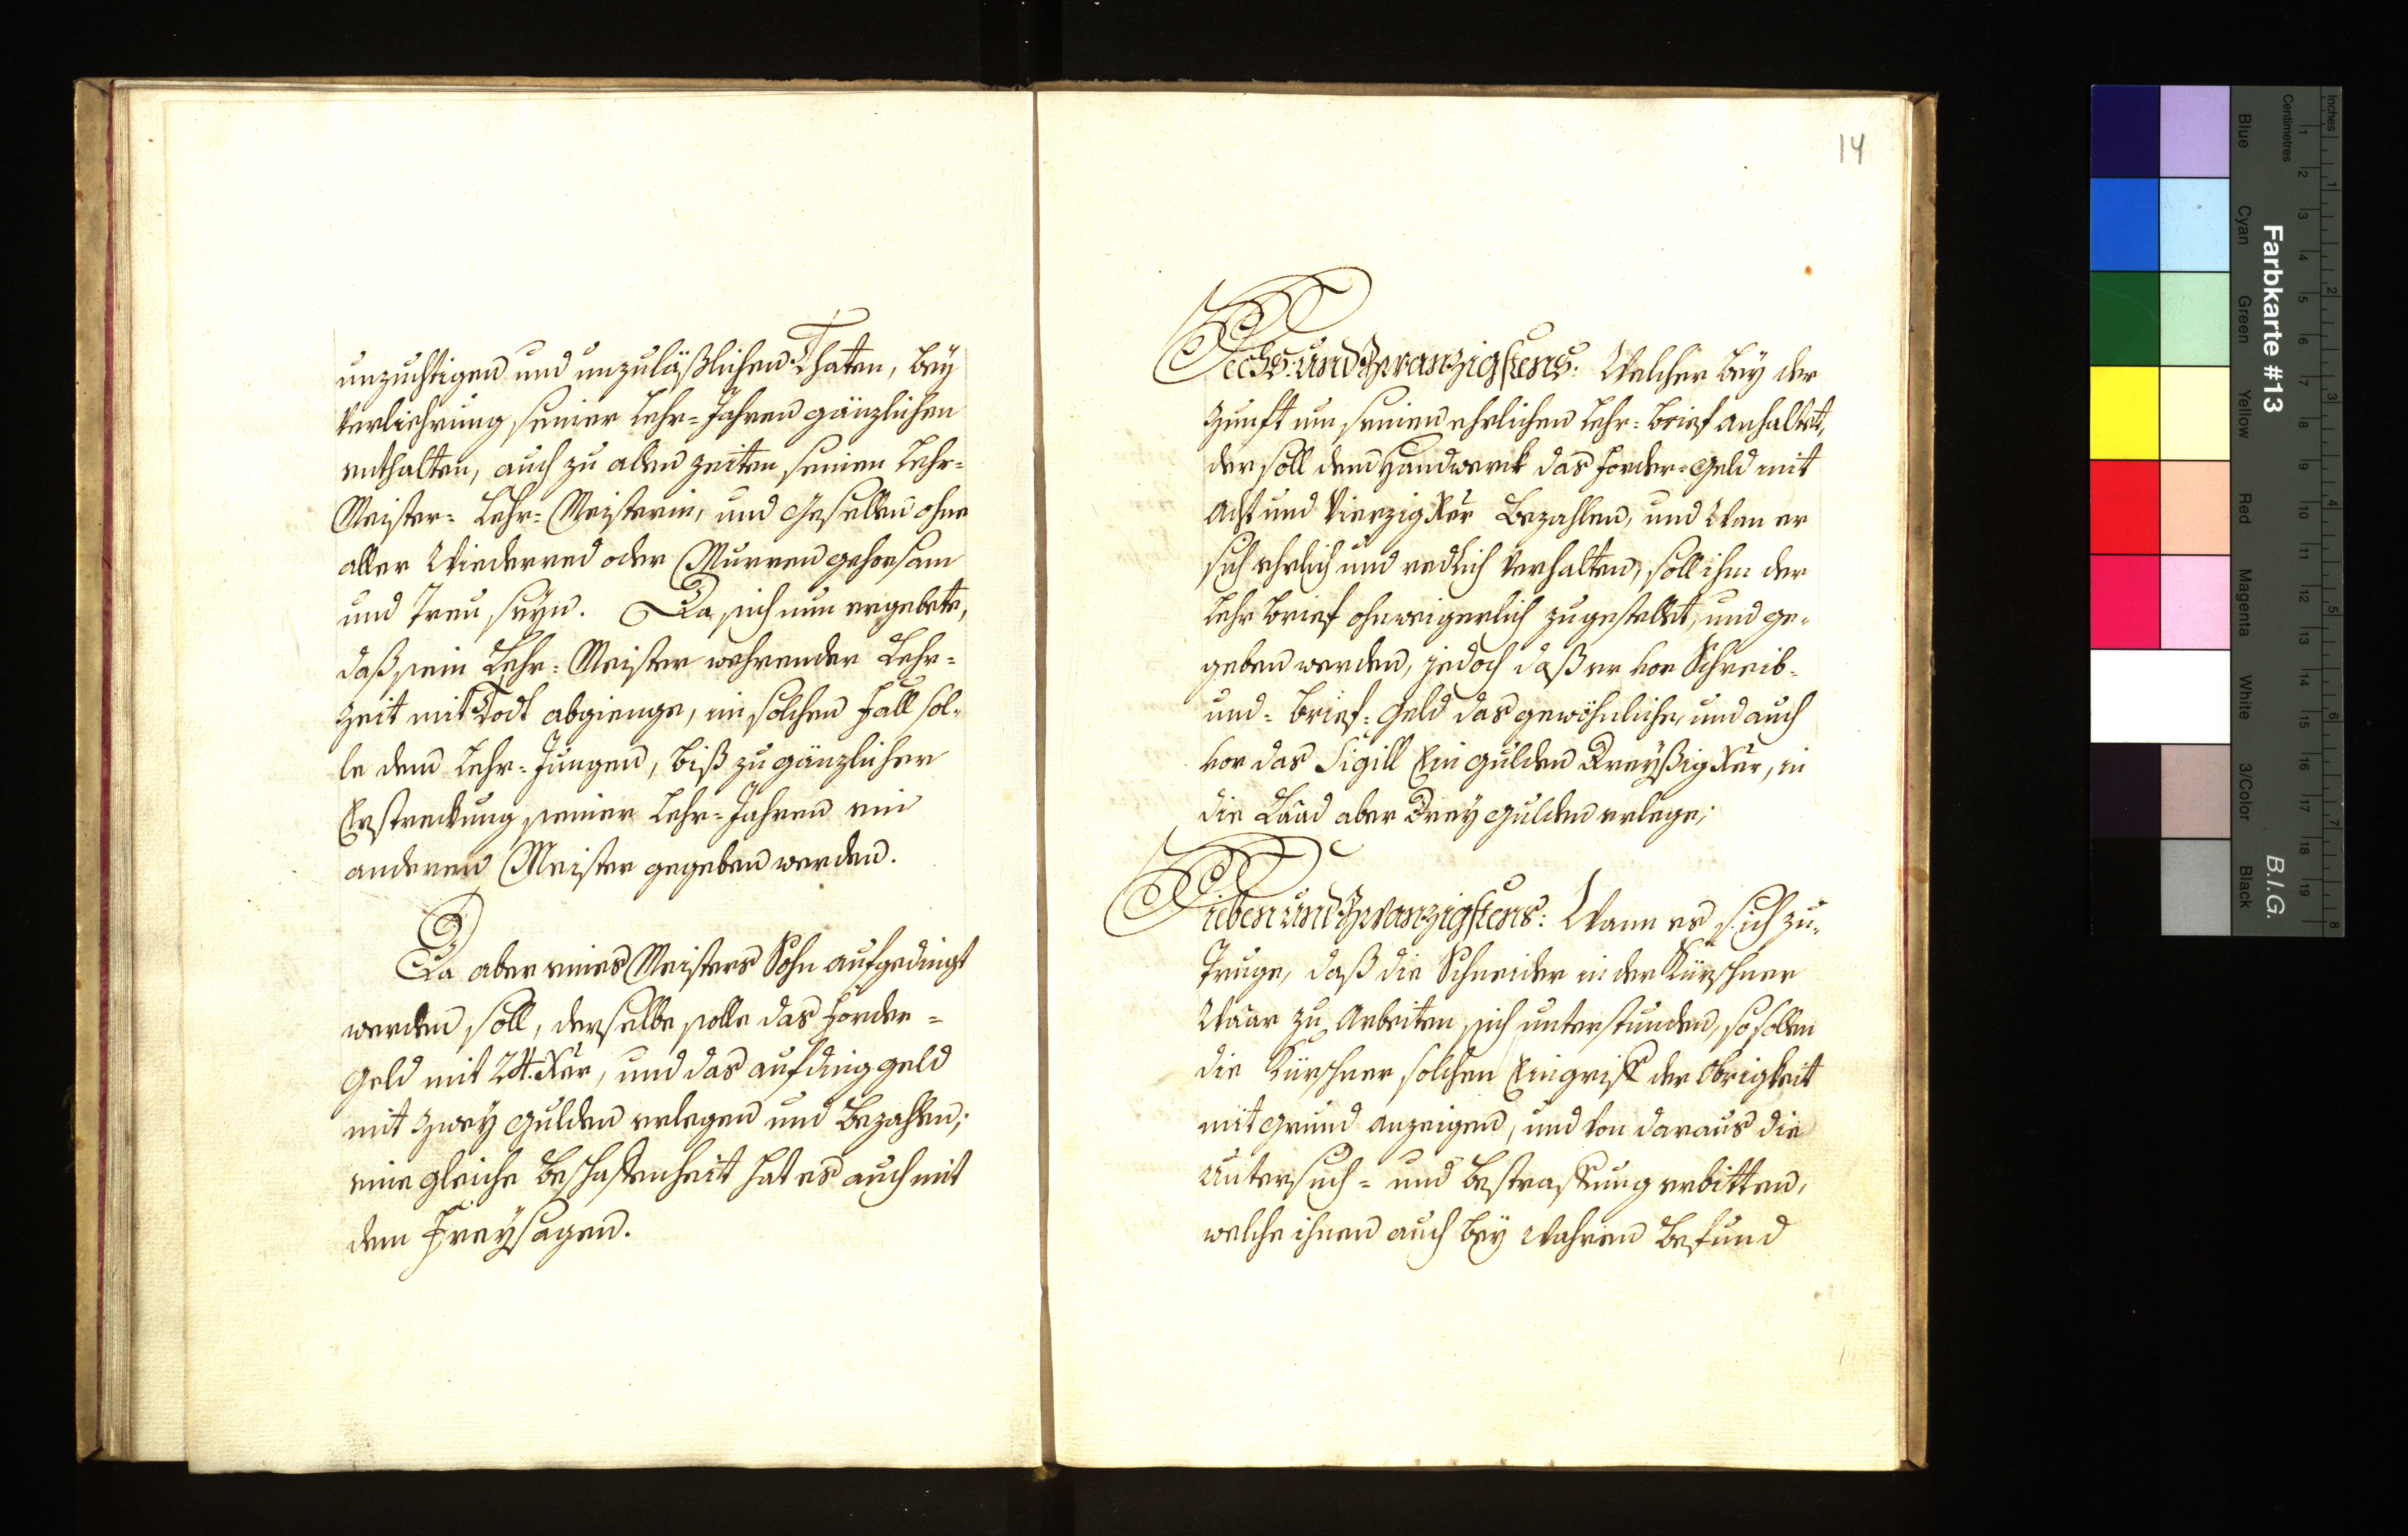 unzuchtigen und unzuläßlichen Thaten, bey
Verliehrung seiner Lehr=Jahren gänzlichen
enthalten, auch zu allen zeiten seinen Lehr=
Meister= Lehr= Meisterin, und Gesellen ohne
aller Wiederred oder Murren gehorsam
und Treu seyn. Da sich nun ergebete,
daß sein Lehr= Meister wehrender Lehr=
zeit mit Todt abgienge, in solchen Fall sol=
le dem Lehr=Jungen, biß zu gänzlicher
Erstreckung seiner Lehr=Jahren ein
anderen Meister gegeben werden.
Da aber eines Meisters Sohn aufgedingt
werden soll, derselbe solle das Forder=
Geld mit 24. Xer, und das aufdinggeld
mit zwey Gulden erlegen und bezahlen;
eine gleiche Beschaffenheit hat es auch mit
dem Freysagen.
14
Sechs und Zwanzigstens: Welcher bey der
Zunft um seinen ehrlichen Lehr=Brief anhaltet,
der soll dem Handwerck das Forder=Geld mit
Acht und Vierzig Xer bezahlen, und Wan er
sich ehrlich und redlich Verhalten, soll ihm der
Lehr Brief ohnweigerlich zugestellt, und ge=
geben werden, jedoch daß er vor Schreib=
und= Brief= Geld das gewöhnliche, und auch
vor das Sigill Ein Gulden Dreyßig Xer, in
die Laad aber Drey Gulden erlege;
Sieben und Zwanzigstens: Wann es sich zu=
truge, daß die Schneider in der Kürschner
Waar zu Arbeiten sich unterstunden, so sollen
die Kürschner solchen Eingriff der Obrigkeit
mit Grund anzeigen, und von daraus die
Untersuch= und Bestraffung erbitten,
welche ihnen auch bey Wahren Befund
Inches
Centimetres
Farbkarte #13
B.I.G.
Blue
Cyan
Green
Yellow
Red
Magenta
White
3/Color
Black
1 2 3 4 5 6 7 8 9 10 11 12 13 14 15 16 17 18 19
1 2 3 4 5 6 7 8